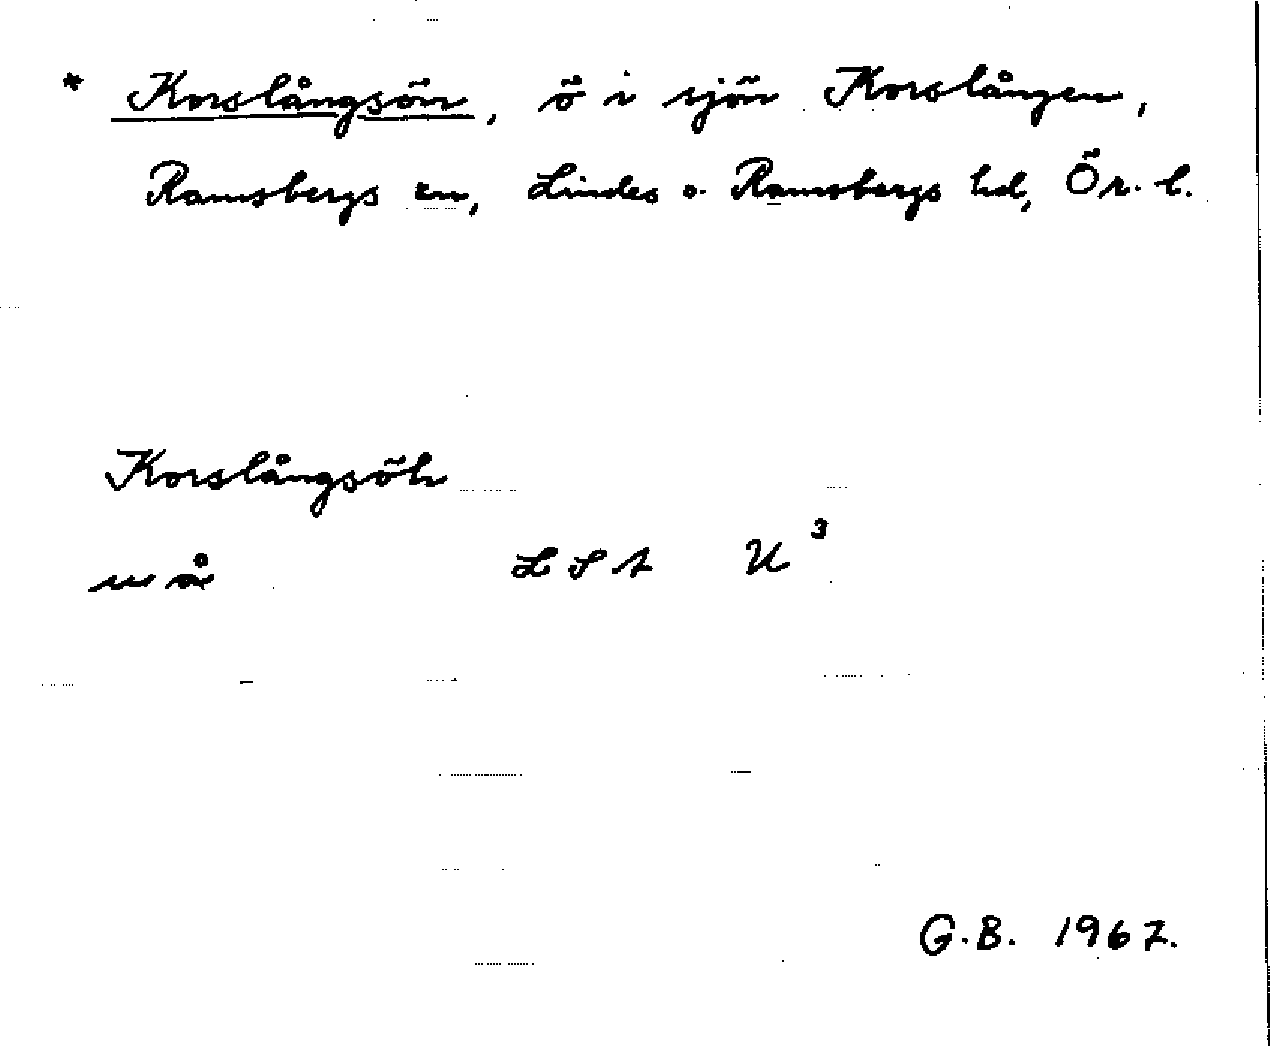 * Korslångsön, ö i sjön Korslången,
Ramsbergs sn, Lindes o. Ramsbergs hd, Ör. l.
Korslångsöh
u å L S A U³
G.B. 1967.